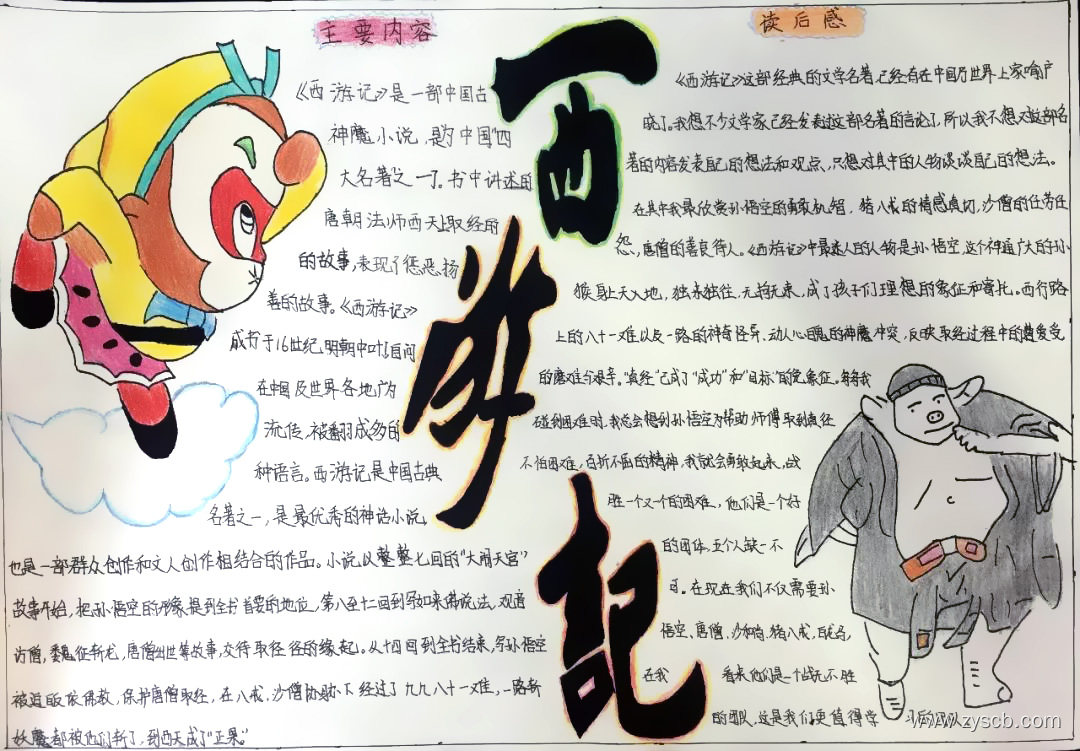 主要内容
《西游记》是一部中国古
神魔小说,是为中国"四
大名著"之一了。书中讲述的
唐朝法师西天上取经的
的故事,表现了惩恶扬
善的故事。《西游记》
成书于16世纪明朝中叶,自问
在中国及世界各地广为
流传,被翻成多的
种语言。西游记是中国古典
名著之一,是最优秀的神话小说,
也是一部群众创作和文人创作相结合的作品。小说以整整七回的"大闹天宫"
故事开始,把孙悟空的形象提到全书首要的地位,第八至十二回到写如来佛说法,观音
访僧,魏征斩龙,唐僧出世等故事,交待取经径的缘起。从十四回到全书结束,写孙悟空
被迫的皈依佛教,保护唐僧取经,在八戒,沙僧协助下经过了九九八十一难,一路斩
妖魔都被他们斩了,到西天成了"正果。"
西游記
读后感
《西游记》这部经典的文学名著已经有在中国乃世界上家喻户
晓了。我想不少文学家已经发表过这部名著的言论了,所以我不想对这部名
著的内容发表自己的想法和观点,只想对其中的人物谈谈自己的想法。
在其中我最欣赏孙悟空的勇敢机智,猪八戒的情感真切,沙僧的任劳任
怨,唐僧的善良待人。《西游记》中最迷人的人物是孙悟空,这个神通广大的孙
猴身上天入地,独来独往,无拘无束,成了孩子们理想的象征和寄托。西行路
上的八十一难以及一路的神奇怪异、动人心魄的神魔冲突,反映取经过程中的遭爱受
的磨难与艰辛。"真经"已成了"成功"和"目标"的象征。每每我
碰到困难时,我总会想到孙悟空为帮助师傅取到真经
不怕困难,百折不屈的精神,我就会勇敢起来,战
胜一个又一个的困难,他们是一个好
的团体,五个人缺一不
可。在现在我们不仅需要孙
悟空、唐僧、沙和尚、猪八戒,白龙马,
在我 看来他们是一个战无不胜
的团队,这是我们更值得学 习的团队
www.zyscb.com